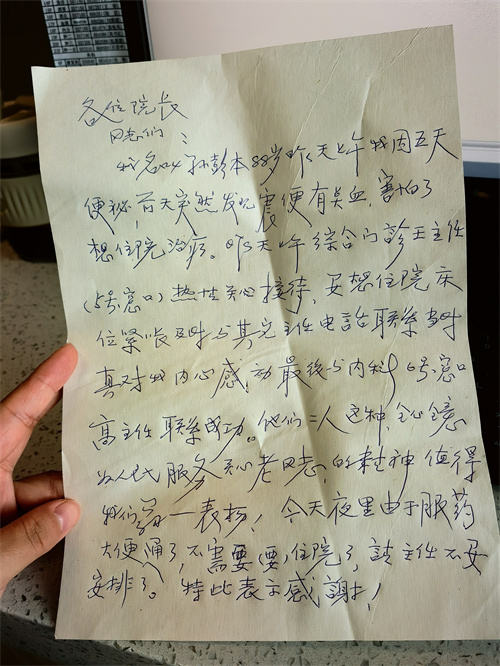 各位院长
同志们：
我名叫孙彭本88岁昨天上午我因五天
便秘，前天突然发现粪便有关血，害怕了
想住院治疗。昨天上午综合门诊王主任
（5号窗口）热性关心接待，要想住院床
位紧张及时与其它主任电話台联系当时
真对我内心感动最後与内科6号窗口
高主任联系成功。他们二人这种全心镜
为人民服务关心老同志，的精神值得
我们一表扬！今天夜里由于服药
大便通了，不需要（要）住院了，請主任不要
安排了。特此表示感謝！